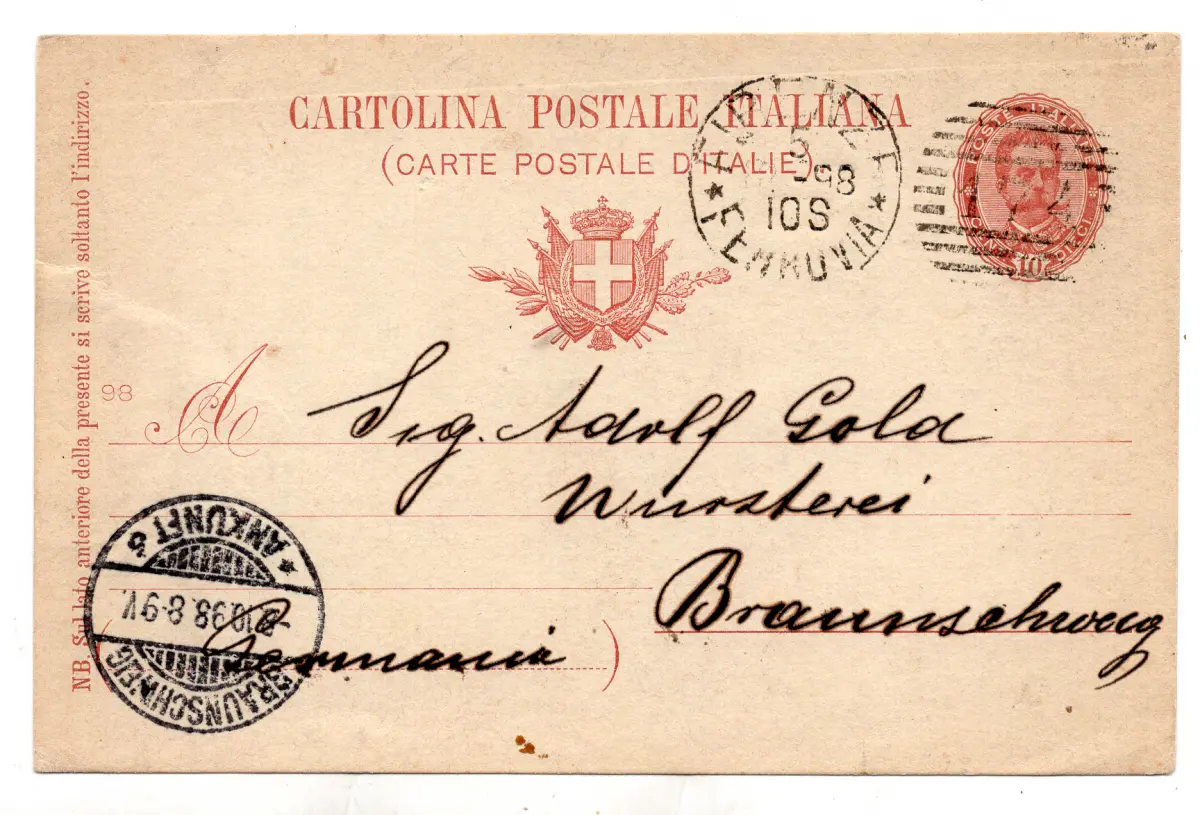 CARTOLINA POSTALE ITALIANA
(CARTE POSTALE D'ITALIE)
FIRENZE
5
-98
10S
★ FERROVIA ★
POSTE ITALIANE
CENT. DIECI
10
NB. Sul lato anteriore della presente si scrive soltanto l'indirizzo.
98
A Sig. Adolf Gold
Wursterei
Braunschweig
(Germania)
★ ANKUNFT
10.98.8-9V.
BRAUNSCHWEIG